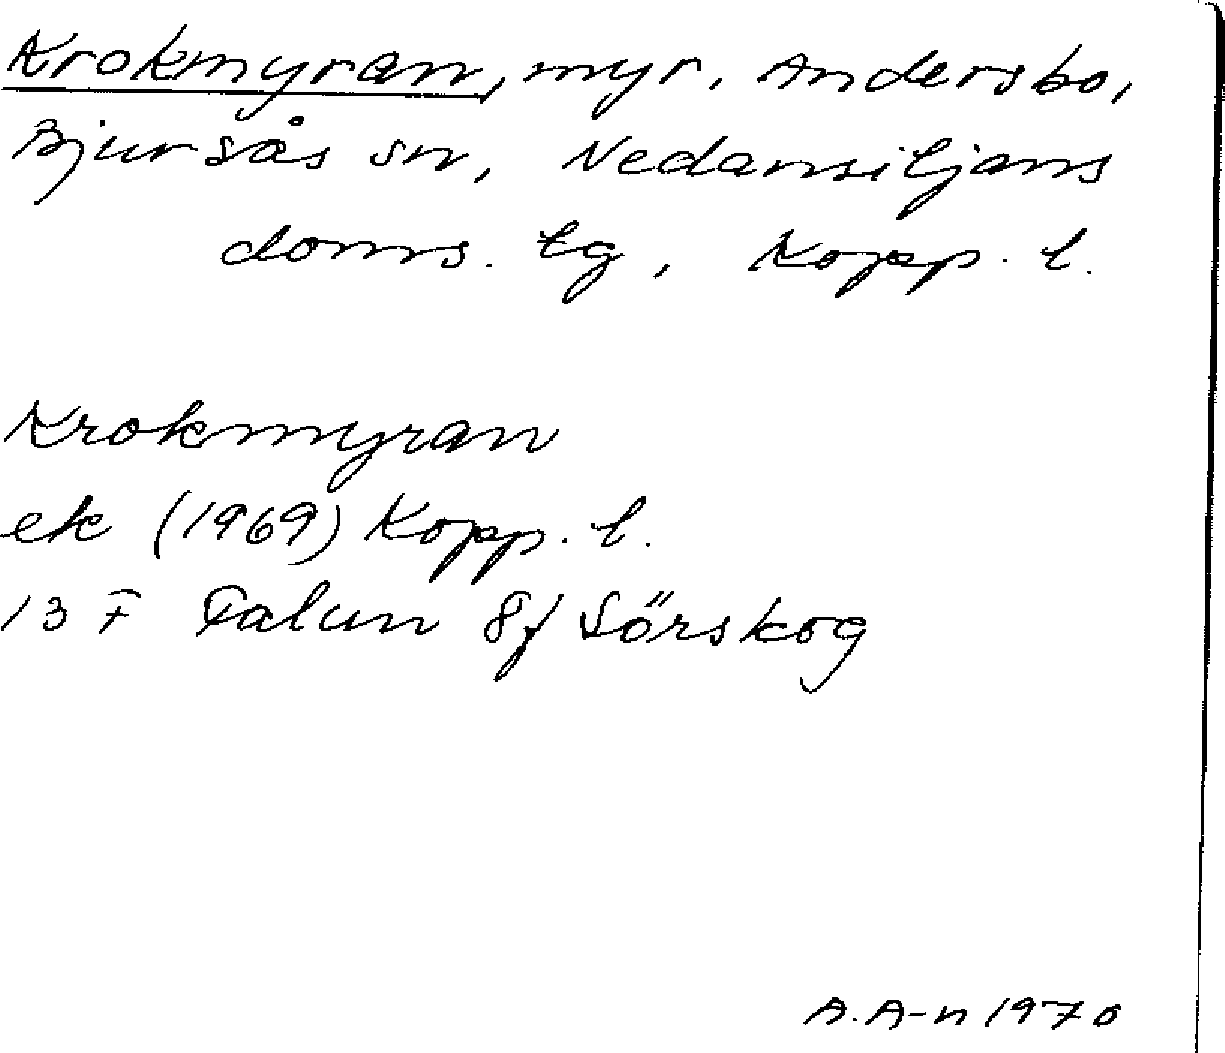 Krokmyran, myr, Andersbo,
Bjursås sn, Nedansiljans
doms. tg, Kopp. l.
Krokmyran
ek (1969) Kopp. l.
13 F Falun 8f Sörskog
A. A-n 1970